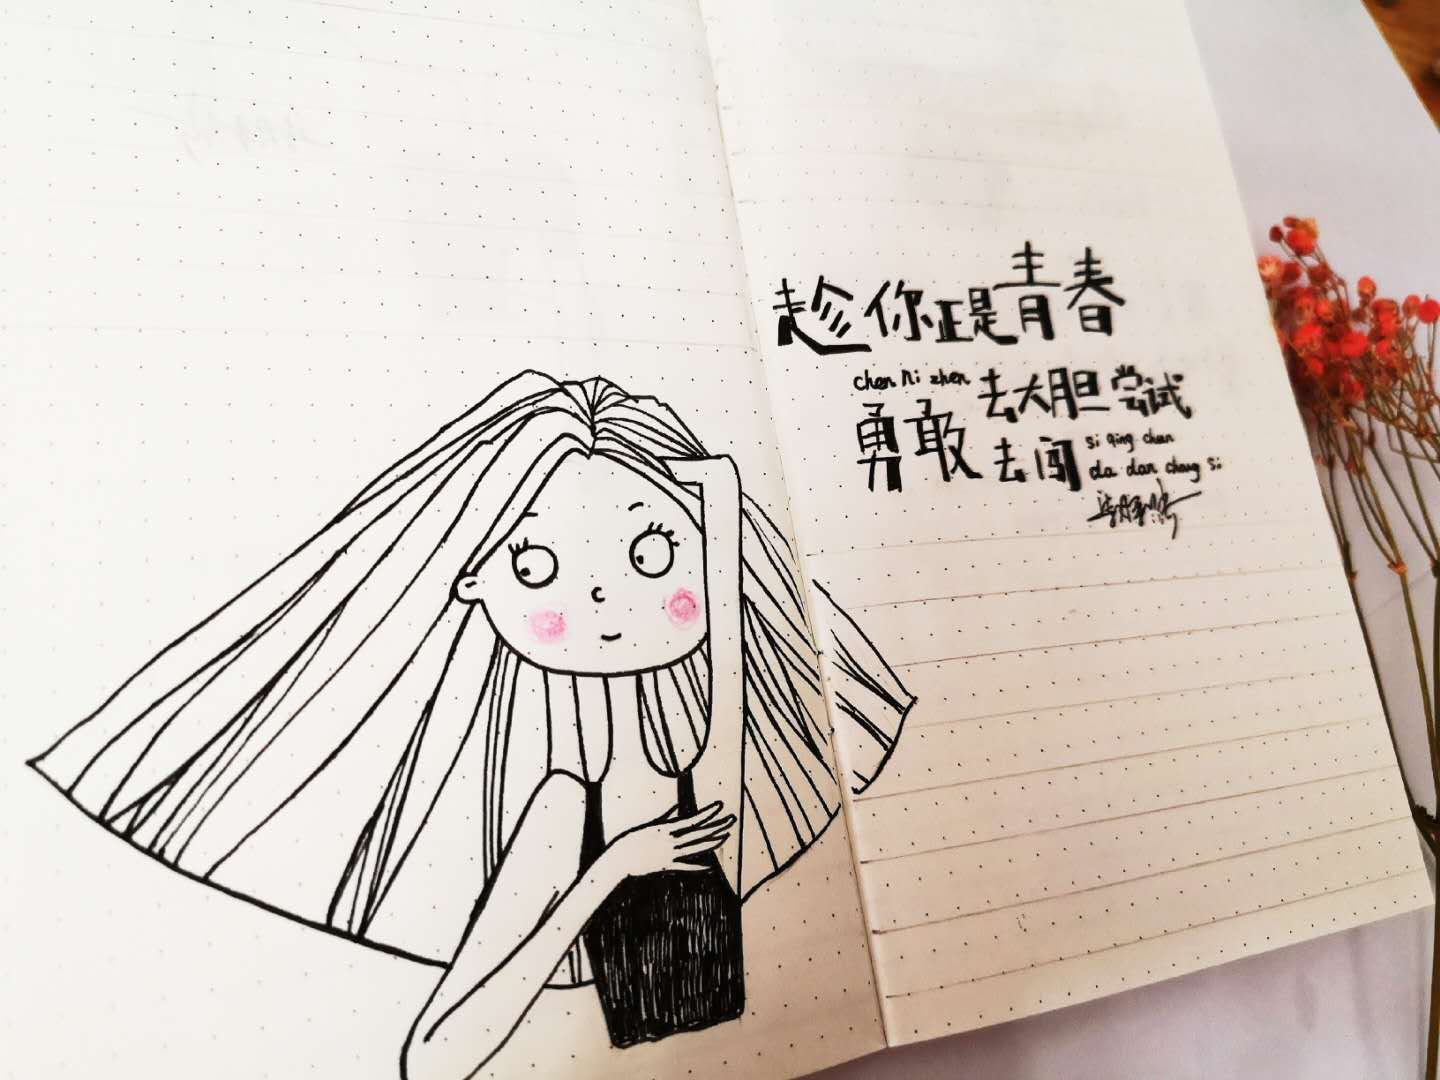 趁你正是青春
chen ni zhen
去大胆尝试
勇敢去闯
si qing chun
da dan chang si